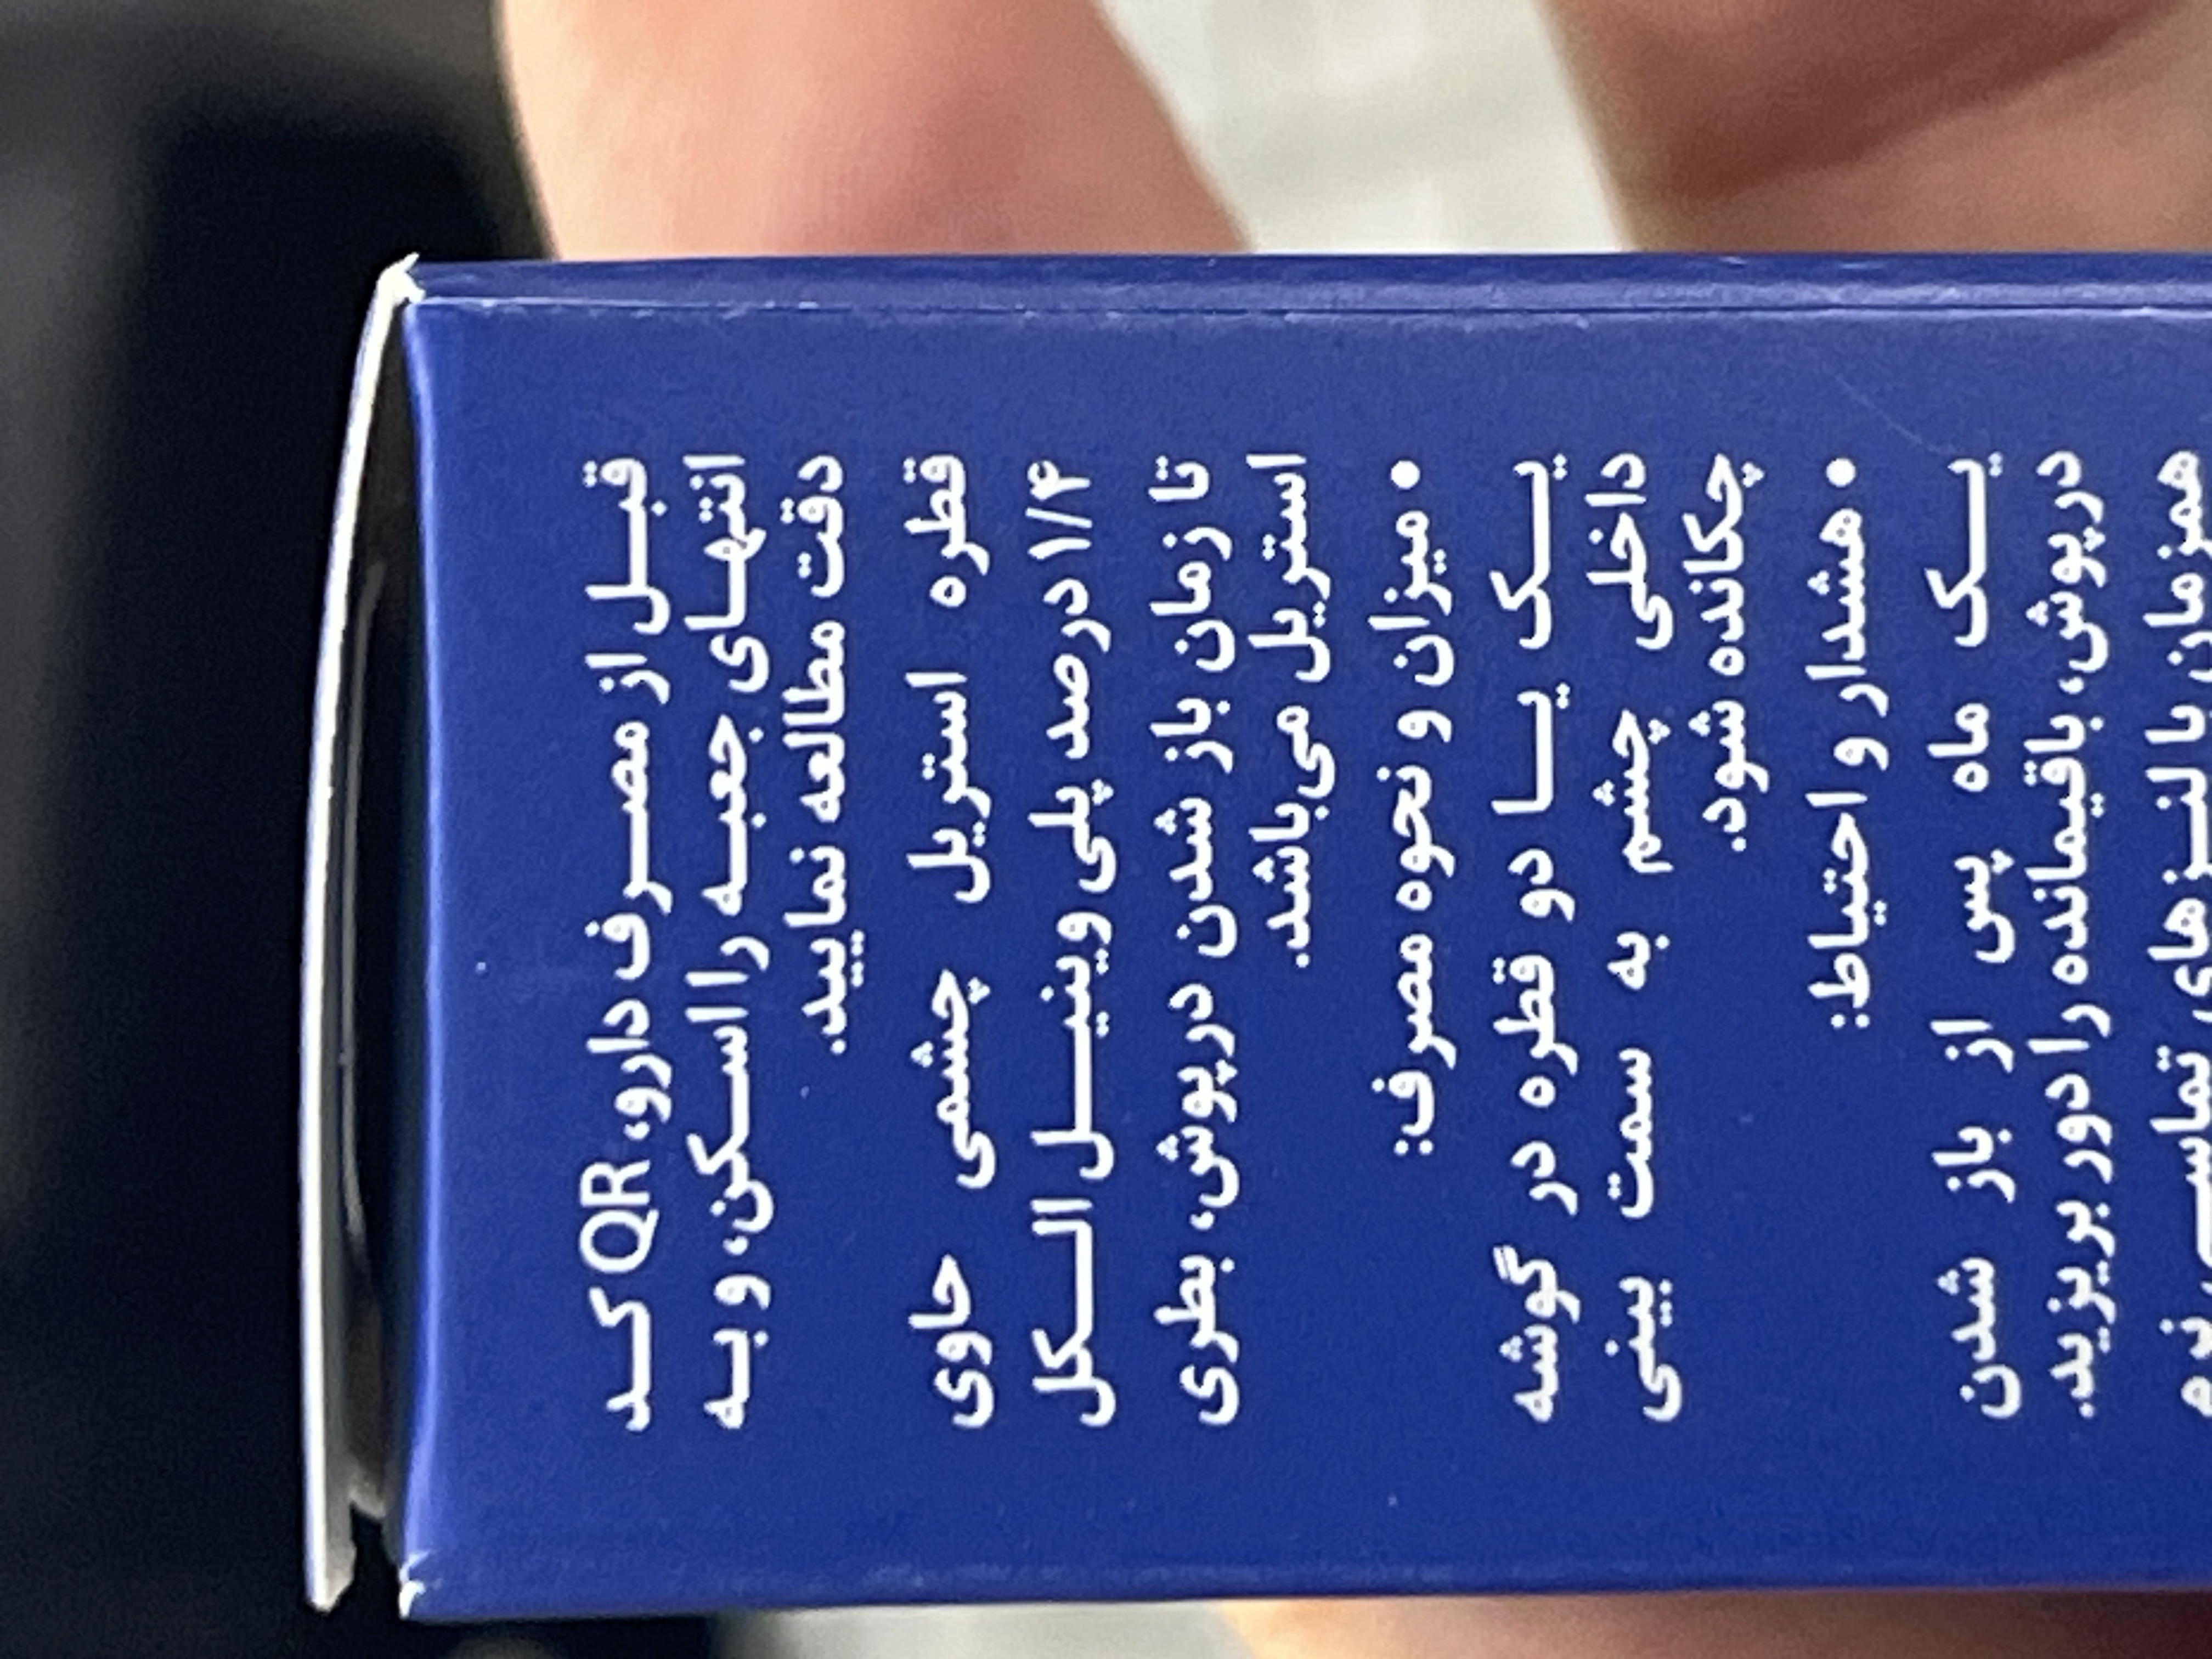 قبل از مصرف دارو، QR کد
انتهای جعبه را اسکن، و به
دقت مطالعه نمایید.
قطره استریل چشمی حاوی
۱/۴ درصد پلی وینیل الکل
تا زمان باز شدن درپوش، بطری
استریل می‌باشد.
• میزان و نحوه مصرف:
یک یا دو قطره در گوشه
داخلی چشم به سمت بینی
چکانده شود.
• هشدار و احتیاط:
یک ماه پس از باز شدن
درپوش، باقیمانده را دور بریزید.
همزمان با لنزهای تماسی نرم